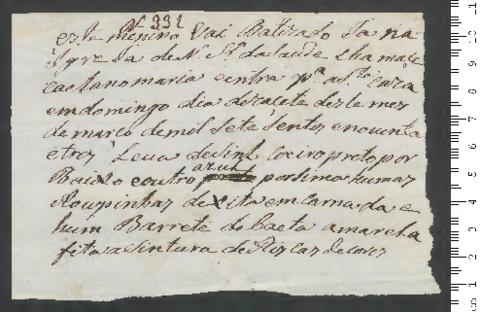 Nº 332
este menino vai Batizado Ja na
Igreija de N. Srª da Saude Chamace
Caetano maria e entra pª a Stª Caza
em domingo dia dezacete deste mez
de marco de mil Sete Sentos e noventa
e tres Leva de Sinl Coeiro preto por
Baicho e outro azul por sima humas
Roupinhas de xita emcarnada e
hum Barrete de Baeta amarela
fita a Sintura de Riscas de cores